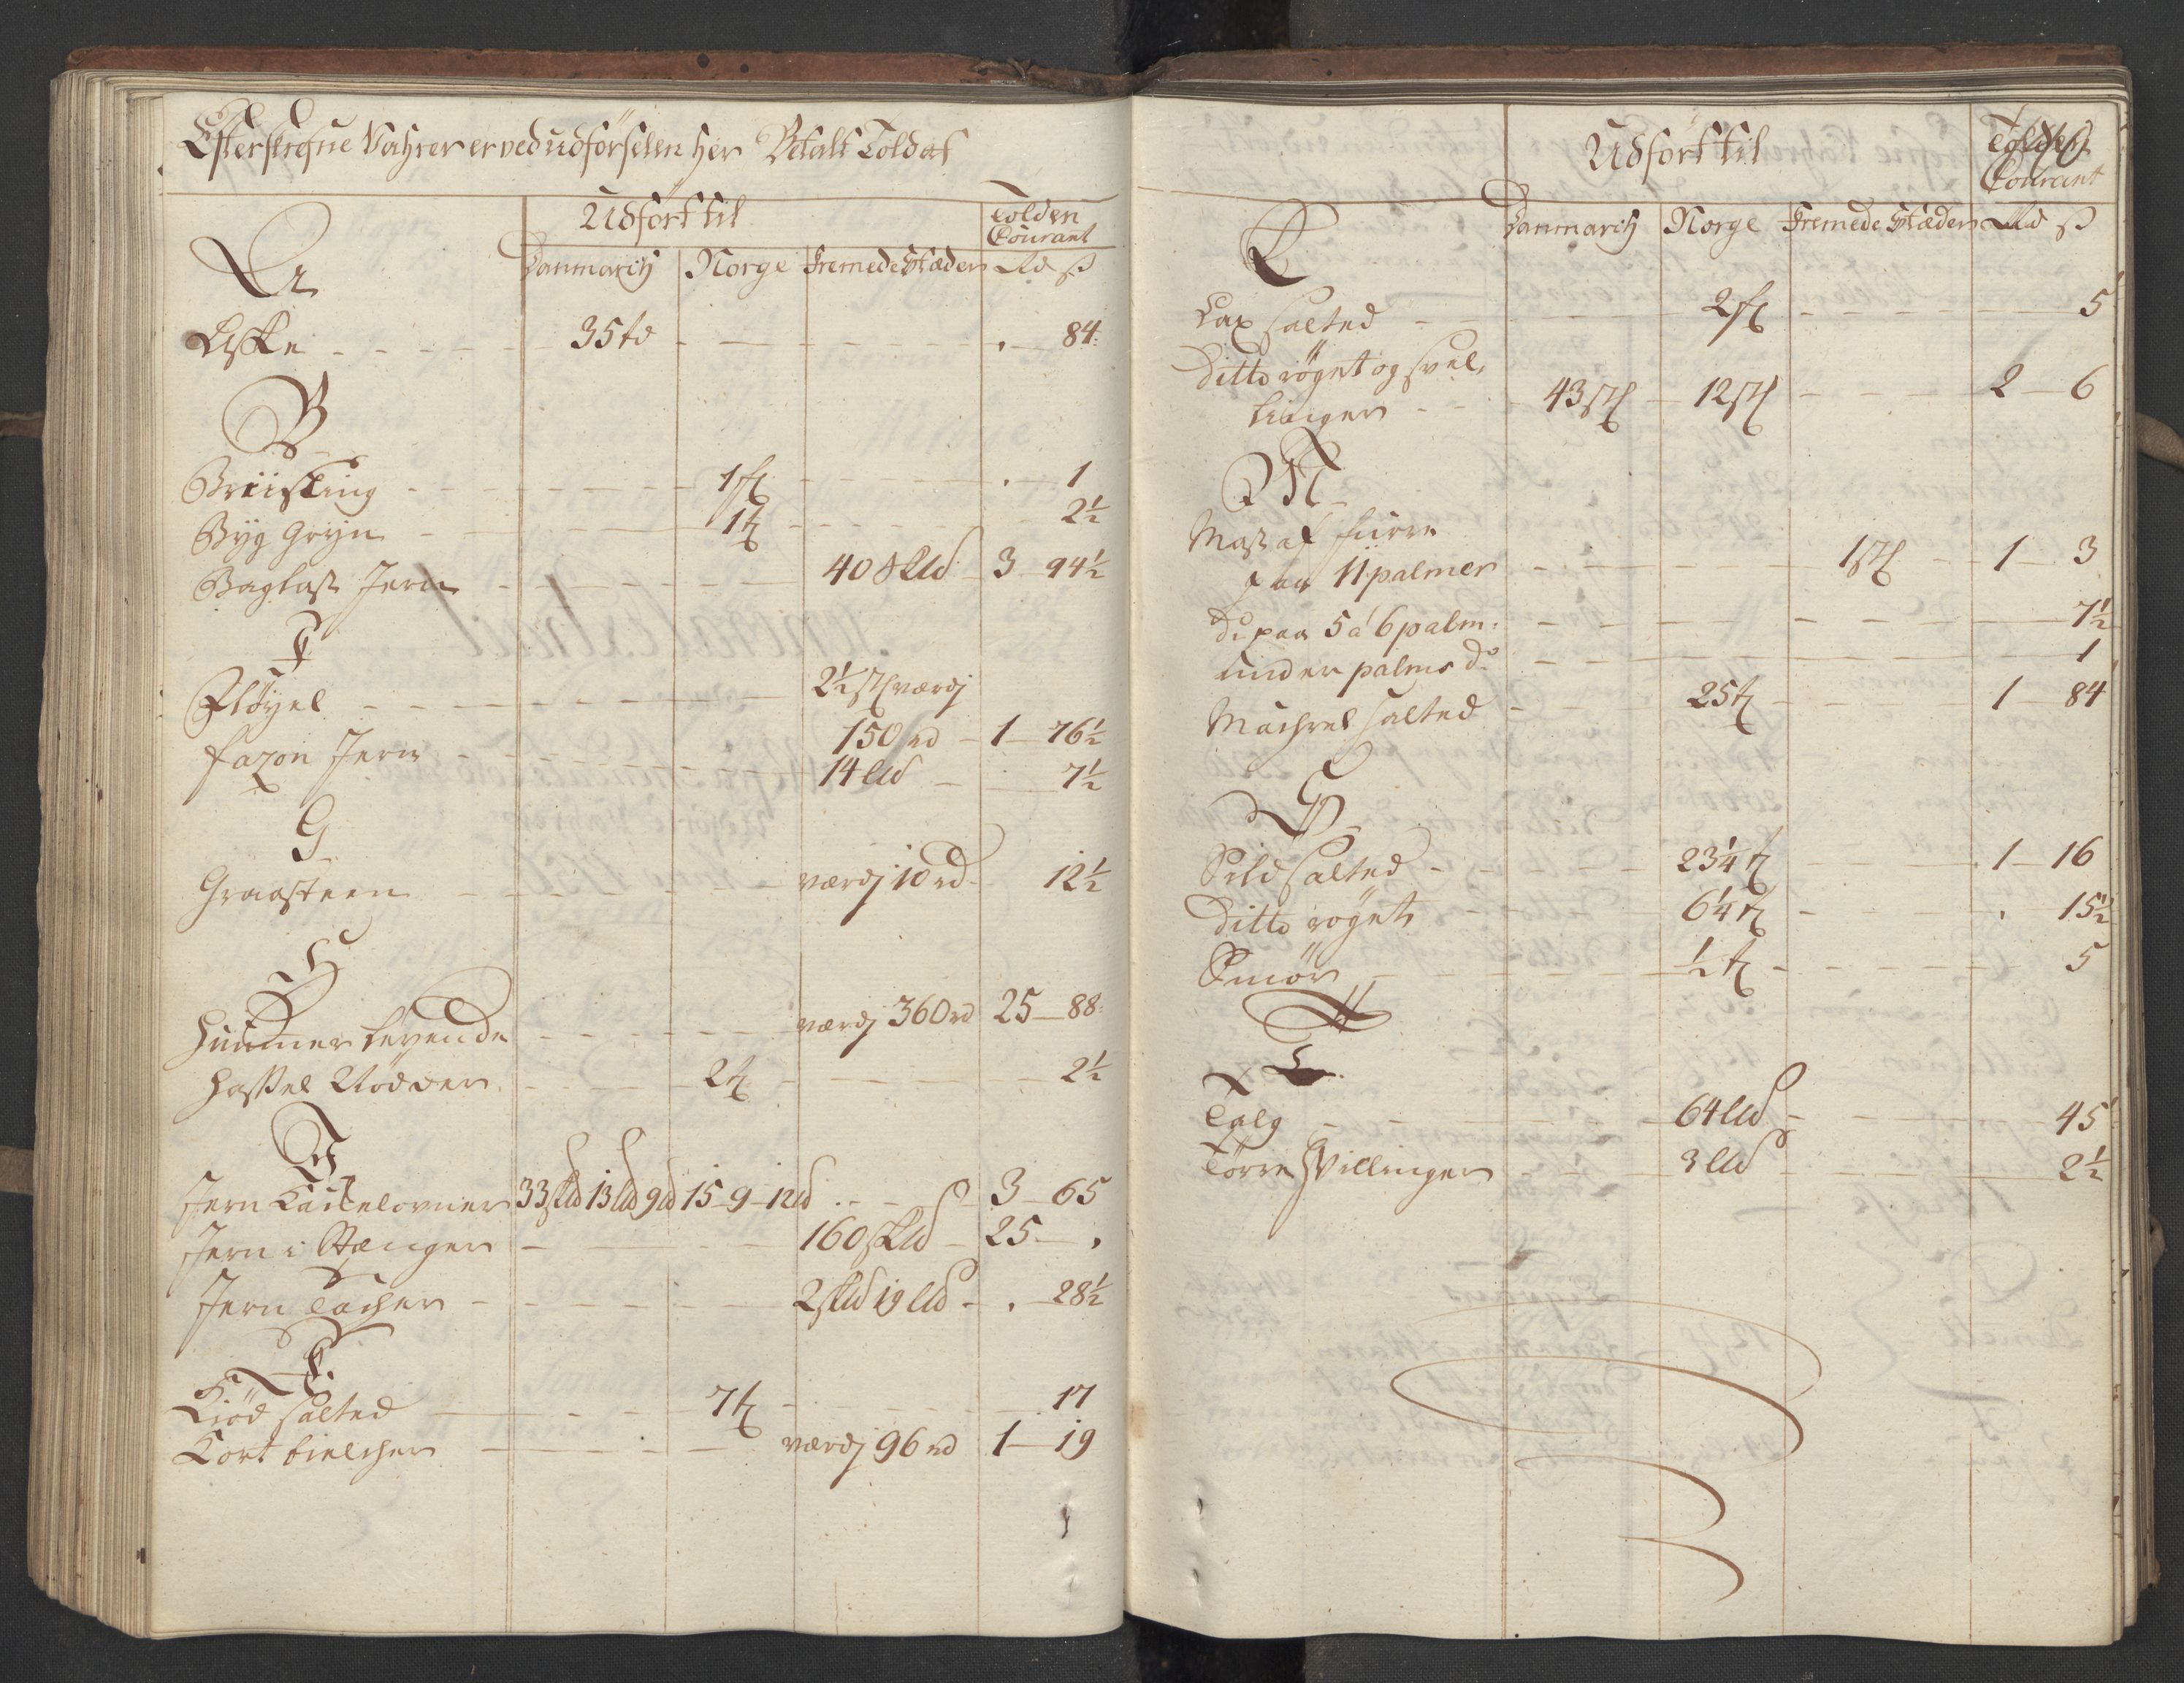 Efterskrefne Vahrer er ved udförselen her Betalt Told af
Udfört til
Tolden Courant
Danmarch Norge Fremede Stæder Rd ß
A
Aske 35 td . 84
B
Brüisling 1 fl . 1
Byg Gryn 1 t 2½
Baglast Jern 40 Skld 3 94½
F
Fløyel 2½ st værdj
150 rd 1 76½
fazon Jern 14 Lld 7½
G
Graasteen værdj 10 rd 12½
H
Hummer levende værdj 360 rd 25 88
Hassel Nødder 2 t 2½
J
Jern Kackelovner 33 skld 13 lld 9 ld 15-9-12 ld 3 65
Jern i Stænger 160 skld 25 .
Jern Tacher 2 skld 19 lld . 28½
K
Kiöd salted 7 t 17
Kort bielcher værdj 96 rd 1 19
Udfört til
Tolden Courant
Danmarch Norge Fremede Stæder Rd ß
L
Lax salted 2 fl 5
Ditto röget og svel-
linger 43 st 12 st 2 6
M
Mast af furre
paa 11 palmer 1 st 1 3
Do paa 5 á 6 palm: 7½
under palms do 1
Machrel salted 25 t 1 84
S
Sild salted 23¼ t 1 16
Ditto röget 6¼ t . 15½
Smör ½ t 5
T
Talg 64 lld 45
Törre Svillinger 3 lld 2½